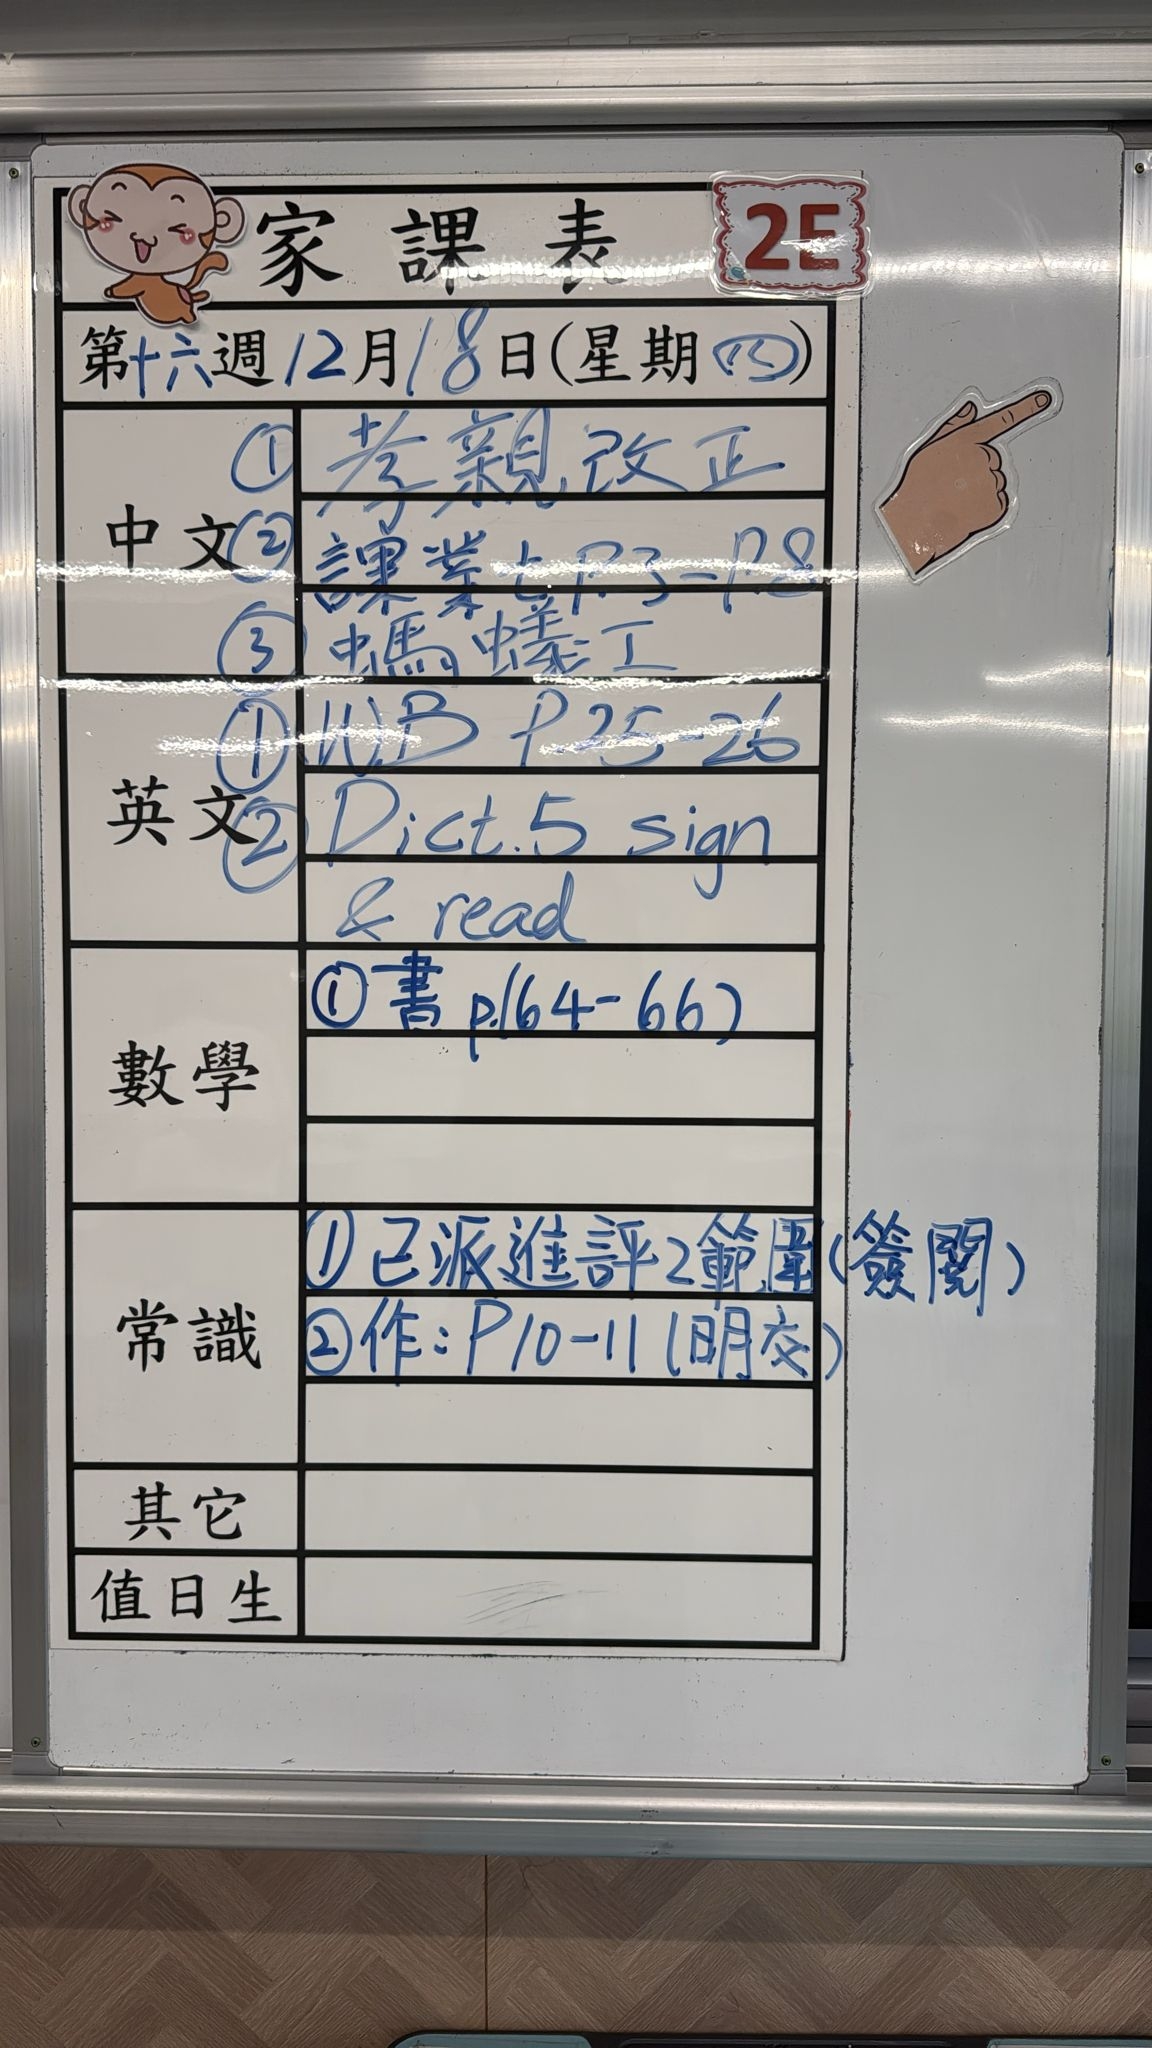 家課表 2E
第十六週12月18日(星期四)
中文
① 孝親改正
② 課業七 P.3-P.8
③ 螞蟻工
英文
① W.B P.25-26
② Dict.5 sign
& read
數學
① 書 p.(64-66)
常識
① 已派進評2範圍(簽閱)
② 作:P10-11(明交)
其它
值日生